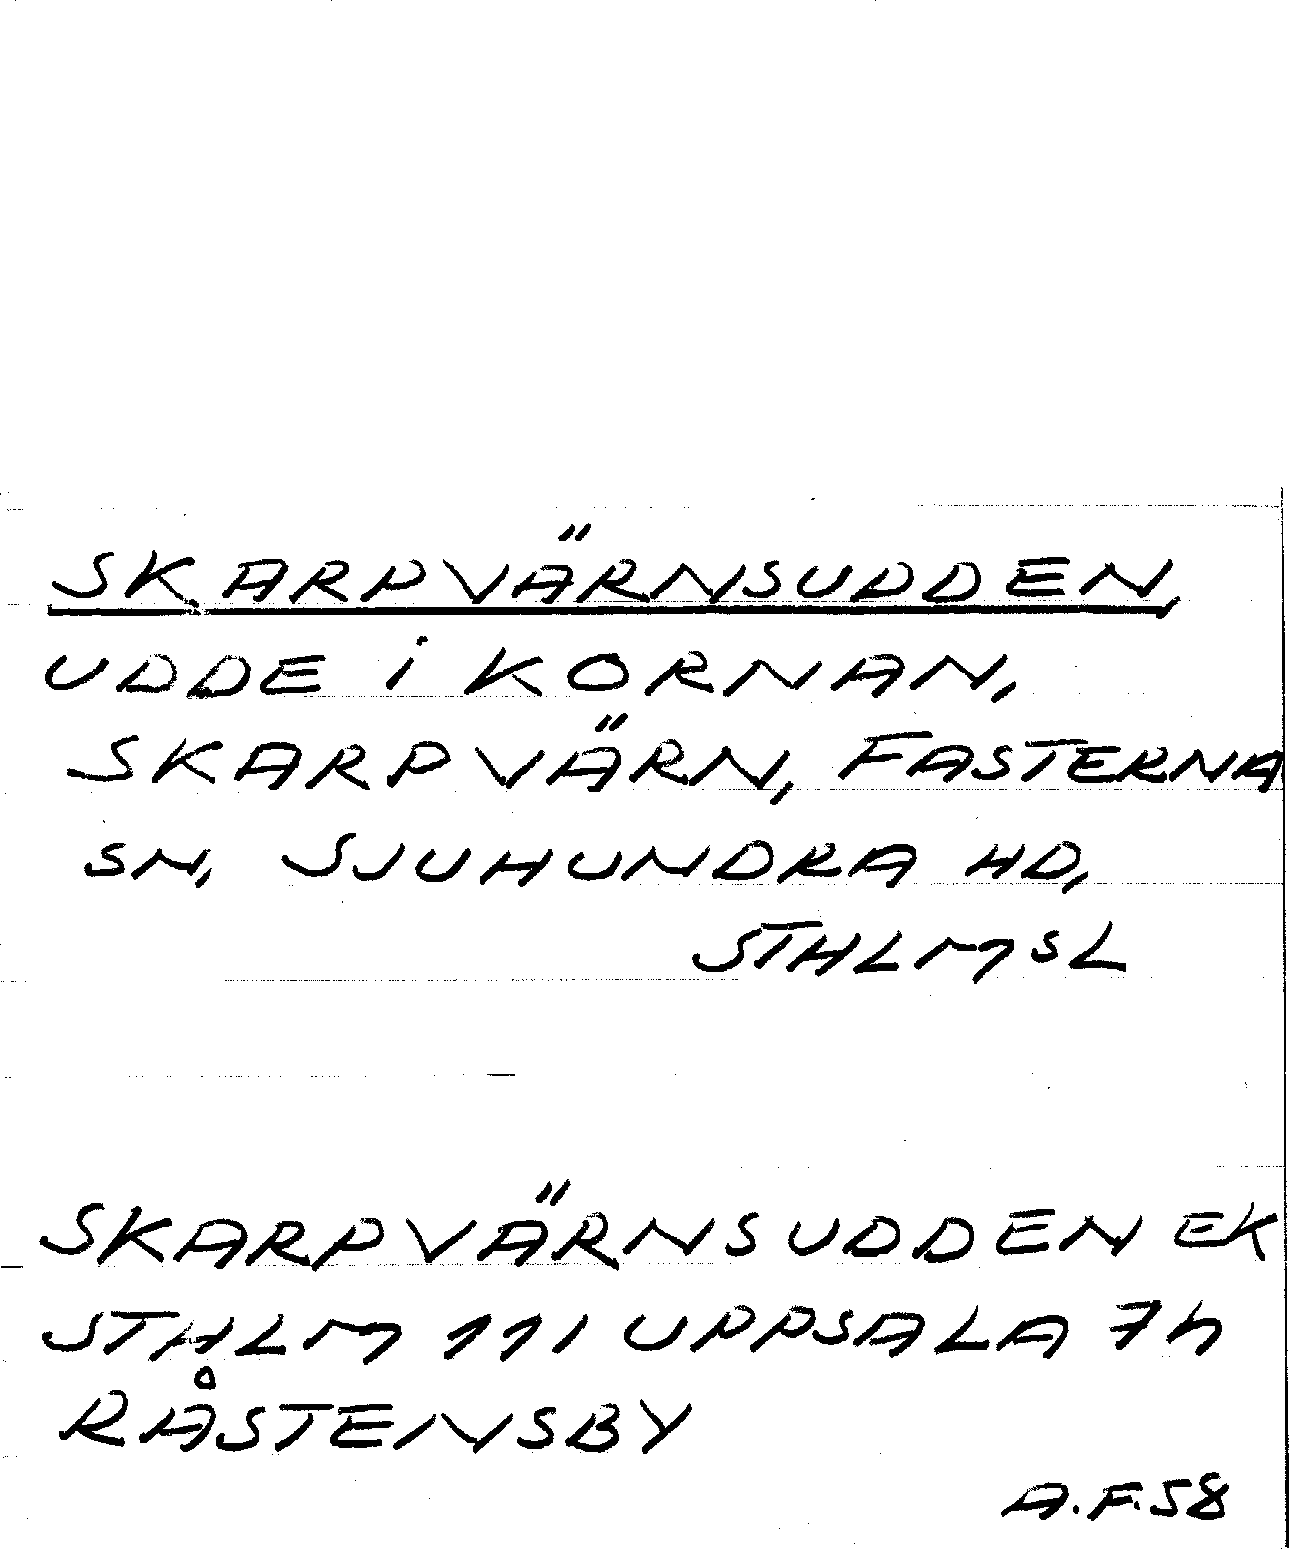 SKARPVÄRNSUDDEN,
UDDE i KORNAN,
SKARPVÄRN, FASTERNA
SN, SJUHUNDRA HD,
STHLMSL
SKARPVÄRNSUDDEN EK
STHLM 111 UPPSALA 7h
RÅSTENSBY
A.F.58